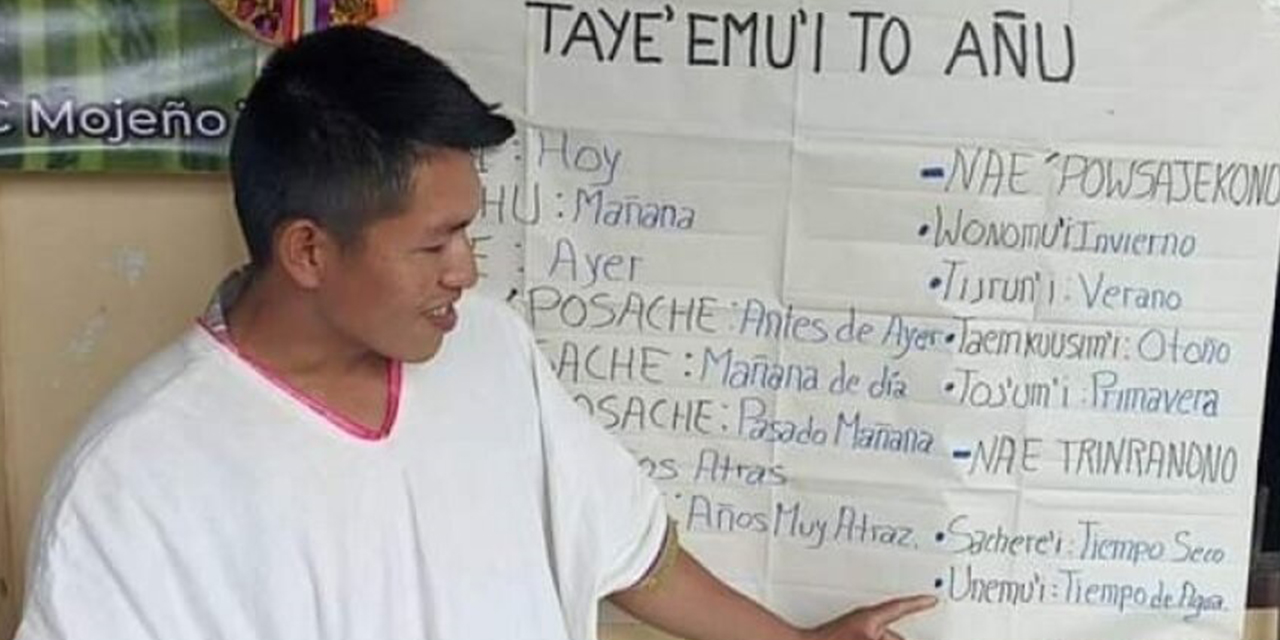 C Mojeño
TAYE'EMU'I TO AÑU
: Hoy
HU : Mañana
E : Ayer
'POSACHE : Antes de Ayer
ACHE : Mañana de día
OSACHE : Pasado Mañana
os Atras
Años Muy Atraz.
- NAE 'POWSAJEKONO
• Wonomu'i Invierno
• Tijrun'i : Verano
• Taemkuusim'i : Otoño
• Tos'um'i : Primavera
- NAE TRINRANONO
• Sachere'i : Tiempo Seco
• Unemu'i : Tiempo de Agua.